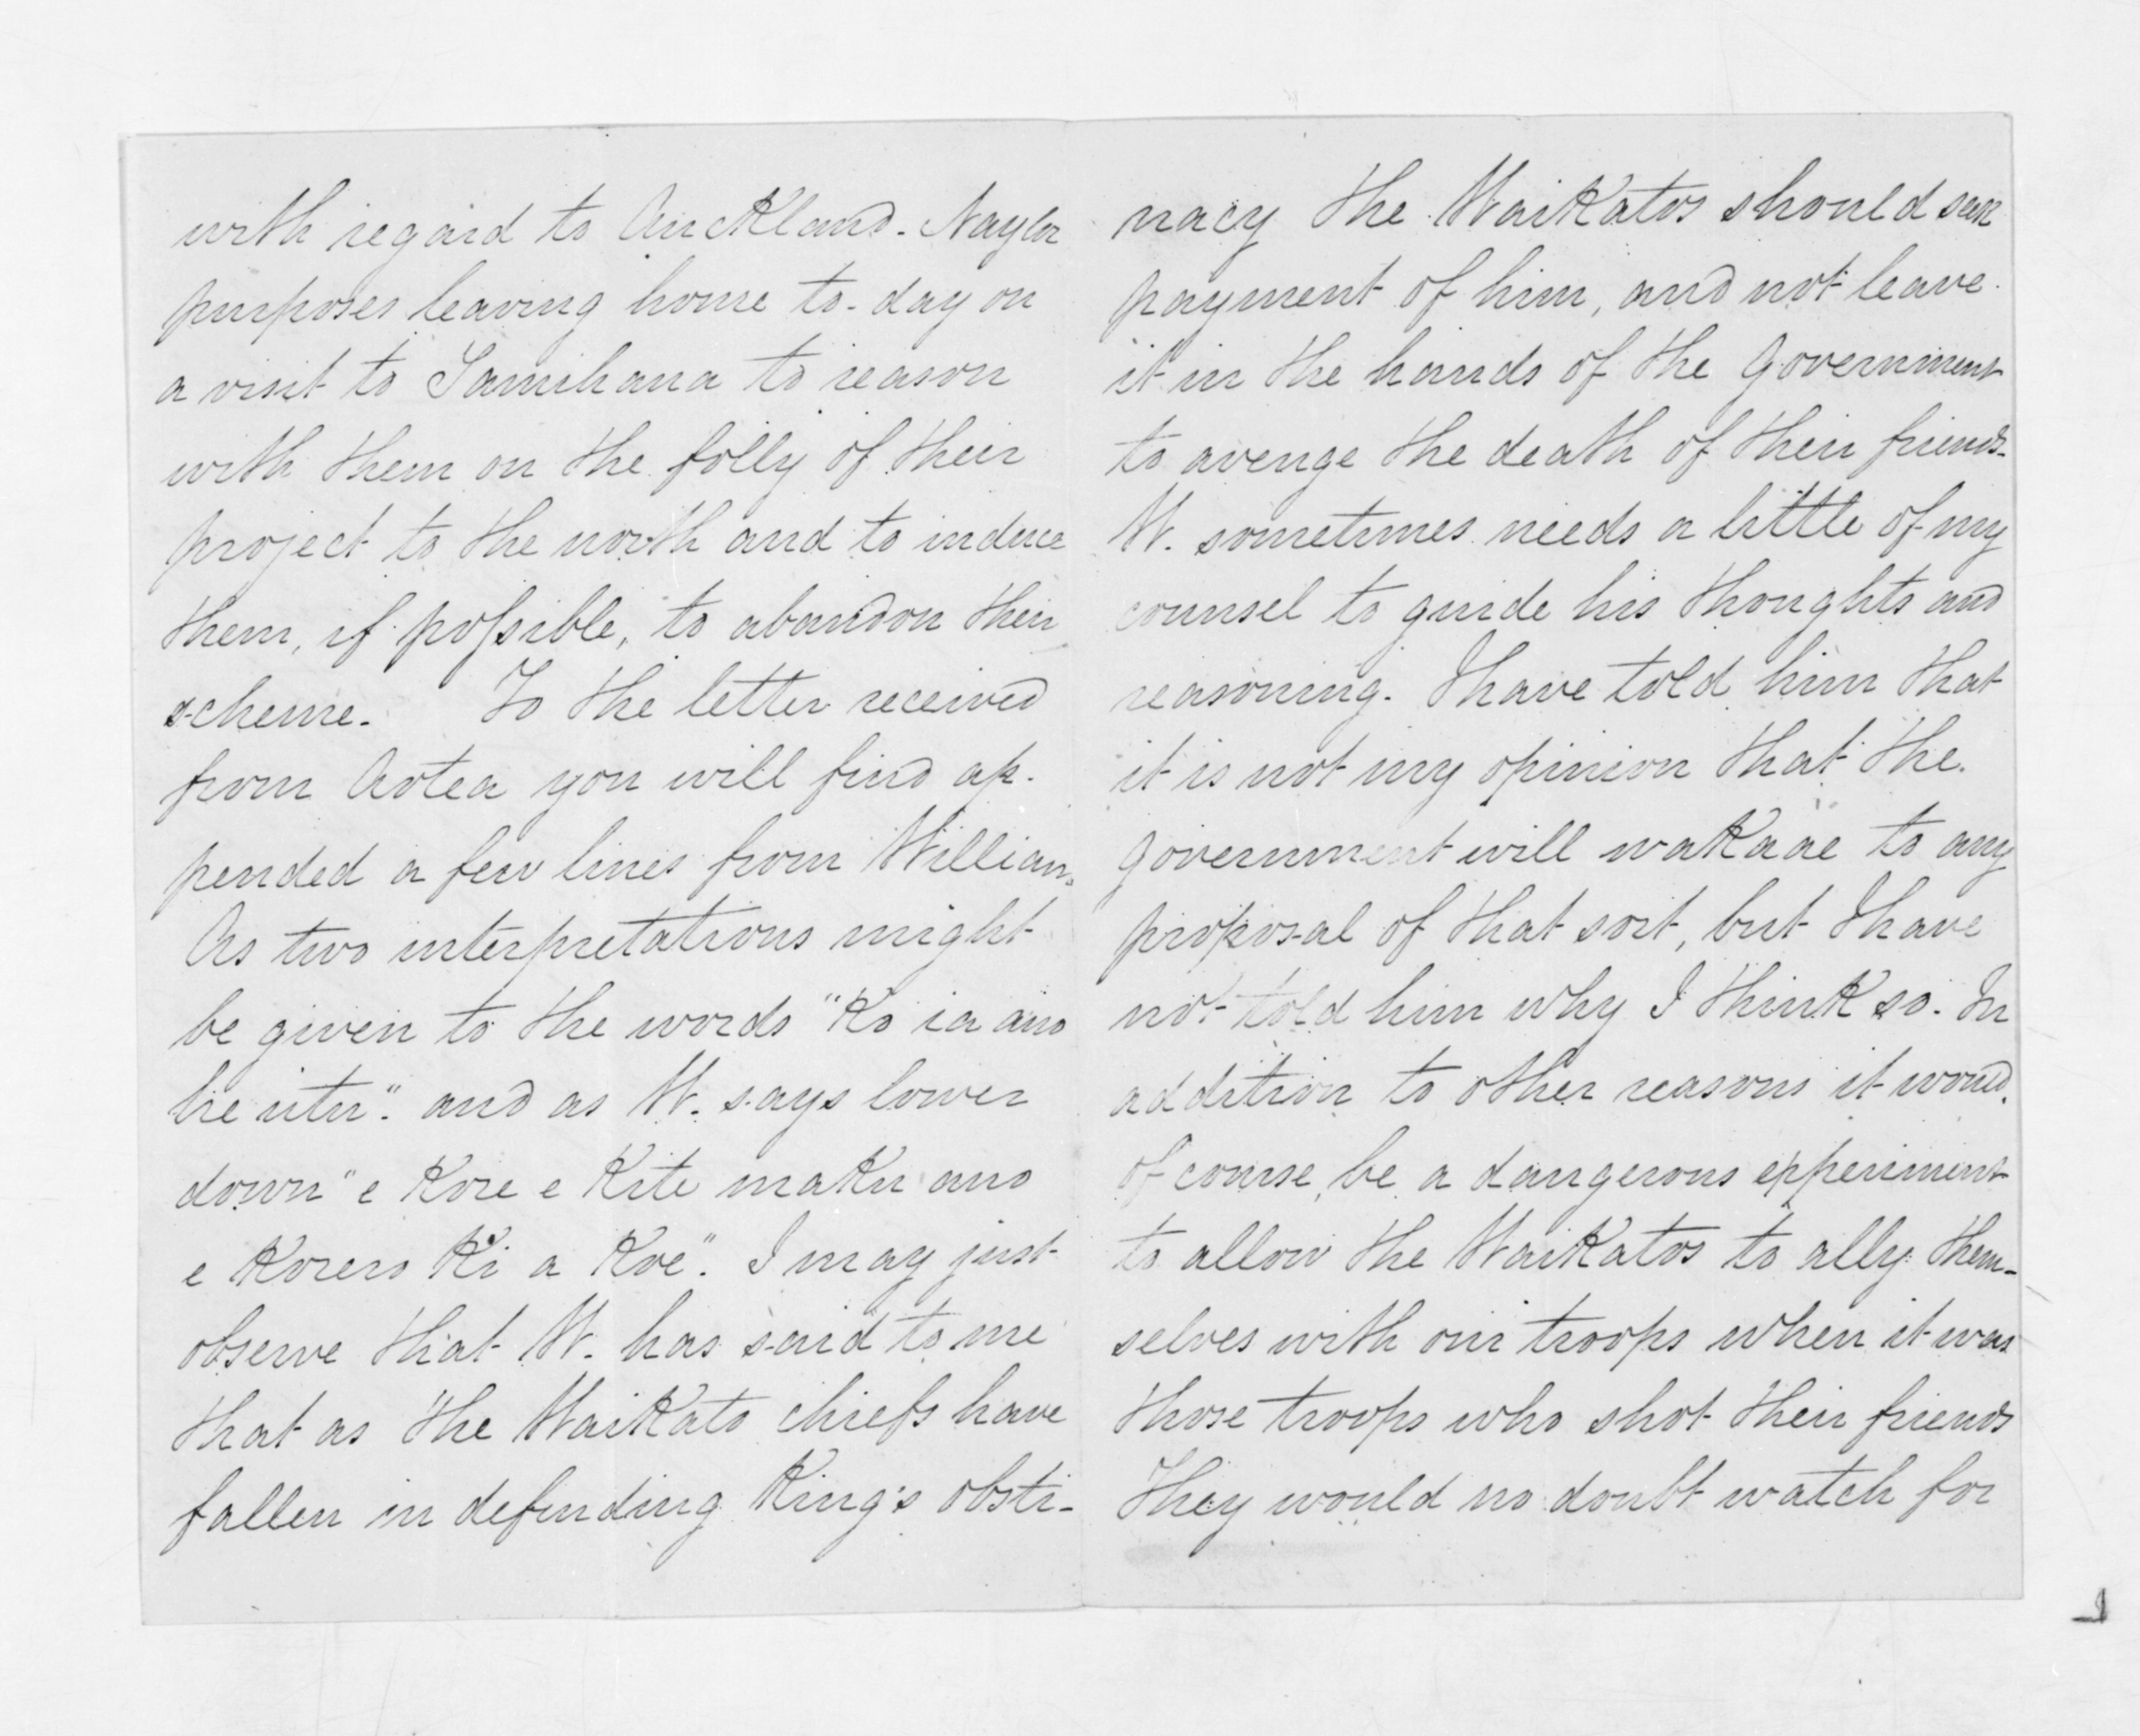 with regard to Auckland. Naylor
purposes leaving home to-day on
a visit to Tamihana to reason
with them on the folly of their
project to the north and to induce
them, if possible, to abandon their
scheme. To the letter received
from Aotea you will find ap-
pended a few lines from William.
As two interpretations might
be given to the words "Ko ia ano
he utu". and as W. says lower
down "e kore e kite maku ano
e korero ki a koe". I may just
observe that W. has said to me
that as the Waikato chiefs have
fallen in defending King's obsti-
nacy the Waikatos should seek
payment of him, and not leave
it in the hands of the Government
to avenge the death of their friends.
W. sometimes needs a little of my
counsel to guide his thoughts and
reasoning. I have told him that
it is not my opinion that the
Government will wakaae to any
proposal of that sort, but I have
not told him why I think so. In
addition to other reasons it would,
of course, be a dangerous experiment
to allow the Waikatos to ally them-
selves with our troops when it was
those troops who shot their friends
They would no doubt watch for